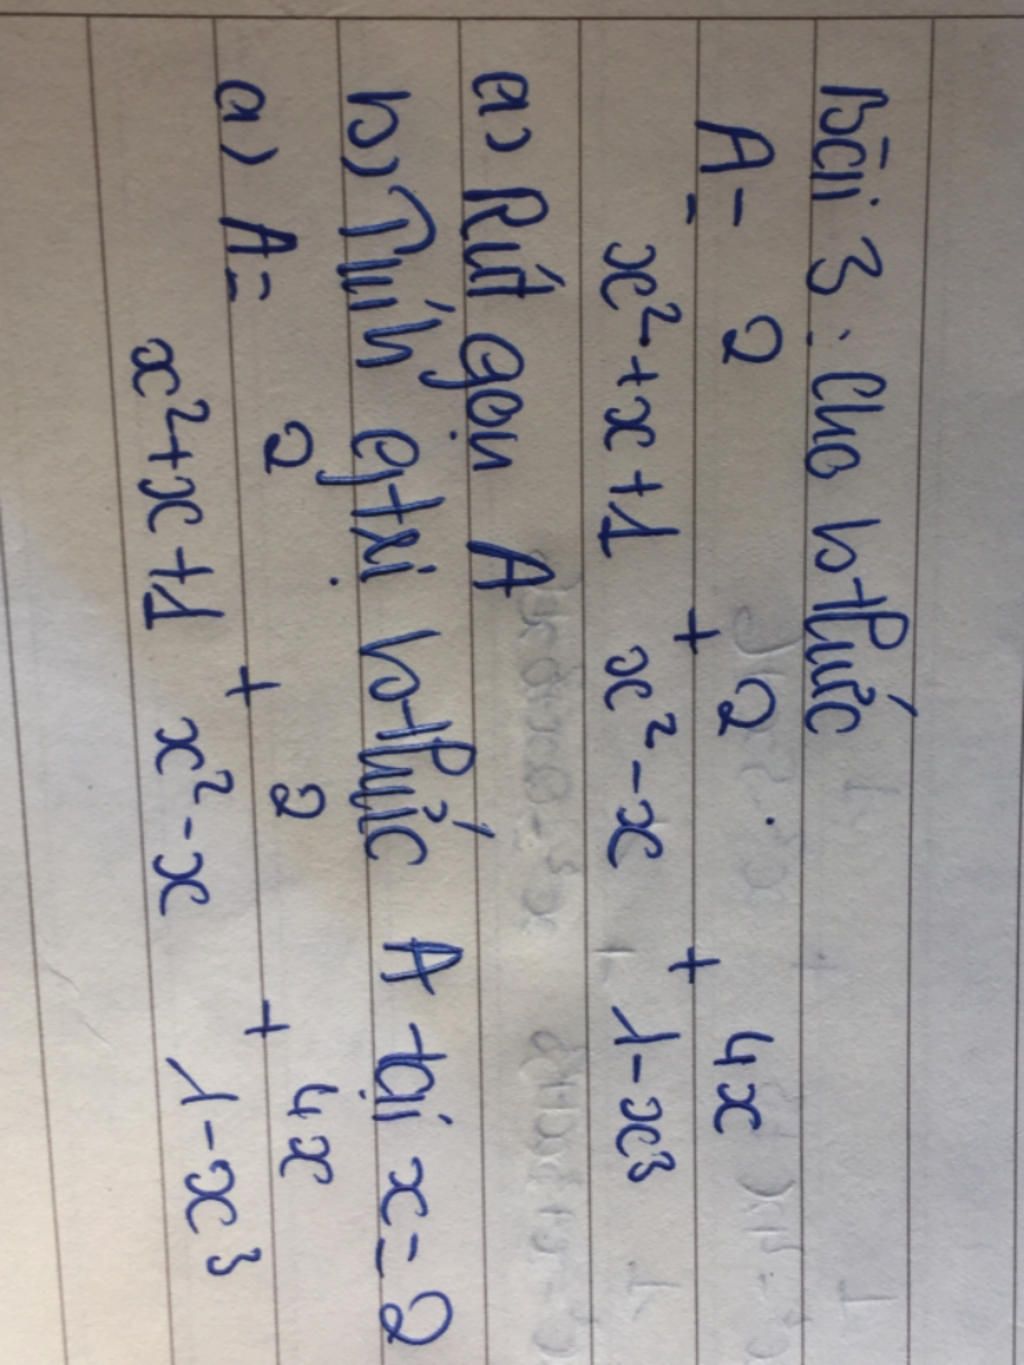 Bài 3 : Cho b thức
A = 2 + 2 + 4x
x² + x + 1 x² - x 1 - x³
a) Rút gọn A
b) Tính gtrị b thức A tại x = 2
a) A = 2 + 2 + 4x
x² + x + 1 x² - x 1 - x³